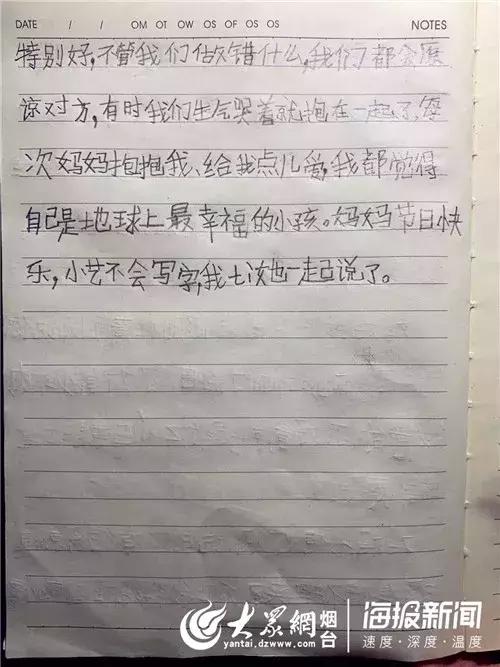 DATE / / OM OT OW OS OF OS OS NOTES
特别好,不管我们做错什么,我们了都会原
谅对方,有时我们生气哭着就抱在一起了,每
次妈妈抱抱我、给我点儿爱,我都觉得
自己是地球上最幸福的小孩。妈妈节日快
乐,小艺不会写字,我七汝也一起说了。
大眾網 烟台
yantai.dzwww.com
海报新闻
速度·深度·温度